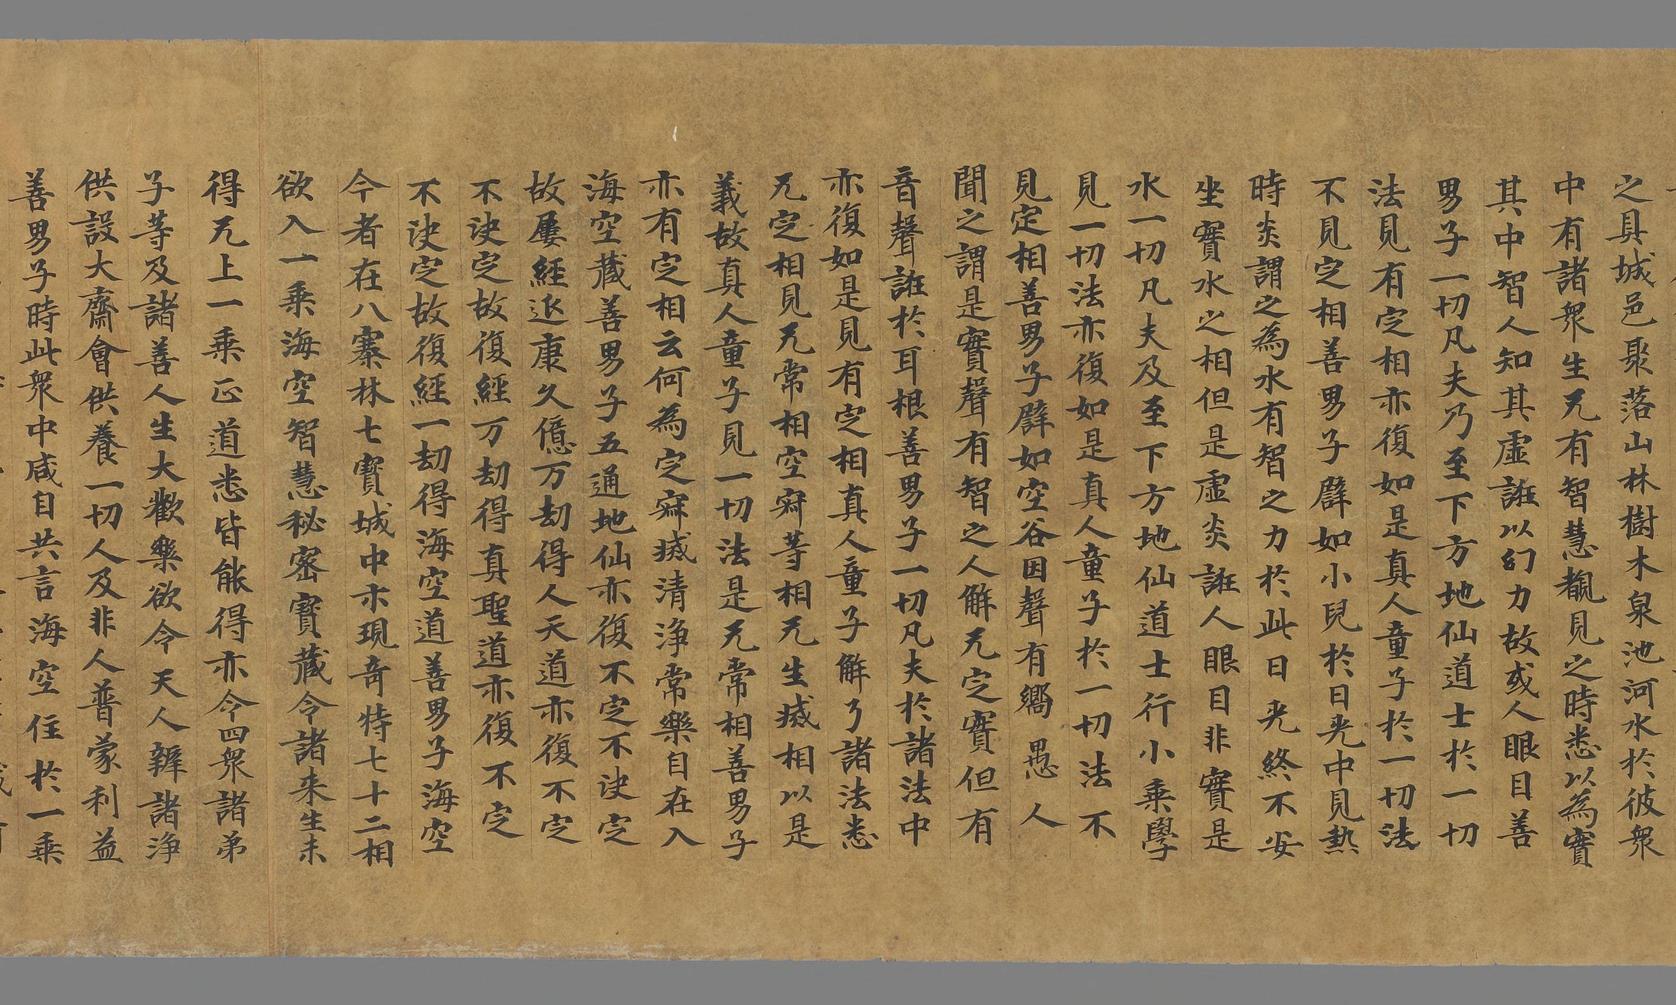 之具城邑聚落山林樹木泉池河水於彼衆
中有諸衆生无有智慧覩見之時悉以為實
其中智人知其虛誑以幻力故或人眼目善
男子一切凡夫乃至下方地仙道士於一切
法見有定相亦復如是真人童子於一切法
不見定相善男子譬如小兒於日光中見熱
時炎謂之為水有智之力於此日光終不妄
坐實水之相但是虛炎誑人眼目非實是
水一切凡夫及至下方地仙道士行小乘學
見一切法亦復如是真人童子於一切法不
見定相善男子譬如空谷因聲有嚮愚人
聞之謂是實聲有智之人解无定實但有
音聲誑於耳根善男子一切凡夫於諸法中
亦復如是見有定相真人童子解了諸法悉
无定相見无常相空寂等相无生滅相以是
義故真人童子見一切法是无常相善男子
亦有定相云何為定寂滅清淨常樂自在入
海空藏善男子五通地仙亦復不定不決定
故屢經退康久億万劫得人天道亦復不定
不決定故復經万劫得真聖道亦復不定
不決定故復經一劫得海空道善男子海空
今者在八騫林七寶城中示現奇特七十二相
欲入一乘海空智慧秘密寶藏令諸未生未
得无上一乘正道悉皆能得亦令四衆諸弟
子等及諸善人生大歡樂欲令天人辦諸淨
供設大齋會供養一切人及非人普蒙利益
善男子時此衆中咸自共言海空住於一乘